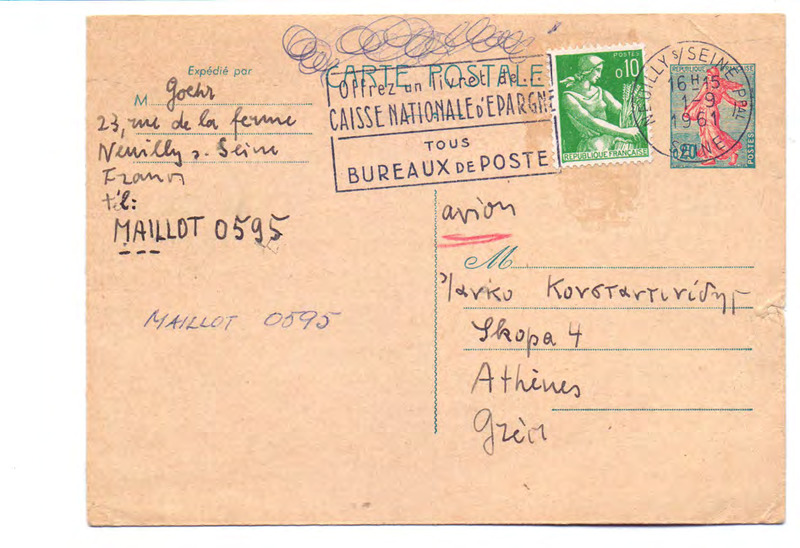 Expédié par
M Goehr
23, rue de la ferme
Neuilly s. Seine
France
tél:
MAILLOT 0595
MAILLOT 0595
CARTE POSTALE
Offrez un livret de
CAISSE NATIONALE D'EPARGNE
TOUS
BUREAUX DE POSTE
POSTES
0,10
REPUBLIQUE FRANÇAISE
NEUILLY S/ SEINE PPAL
16H15
1-9
1961
SEINE
REPUBLIQUE FRANÇAISE
0,20
POSTES
avion
M
Γιάνκο Κονσταντινίδης
Skopa 4
Athènes
Grèce